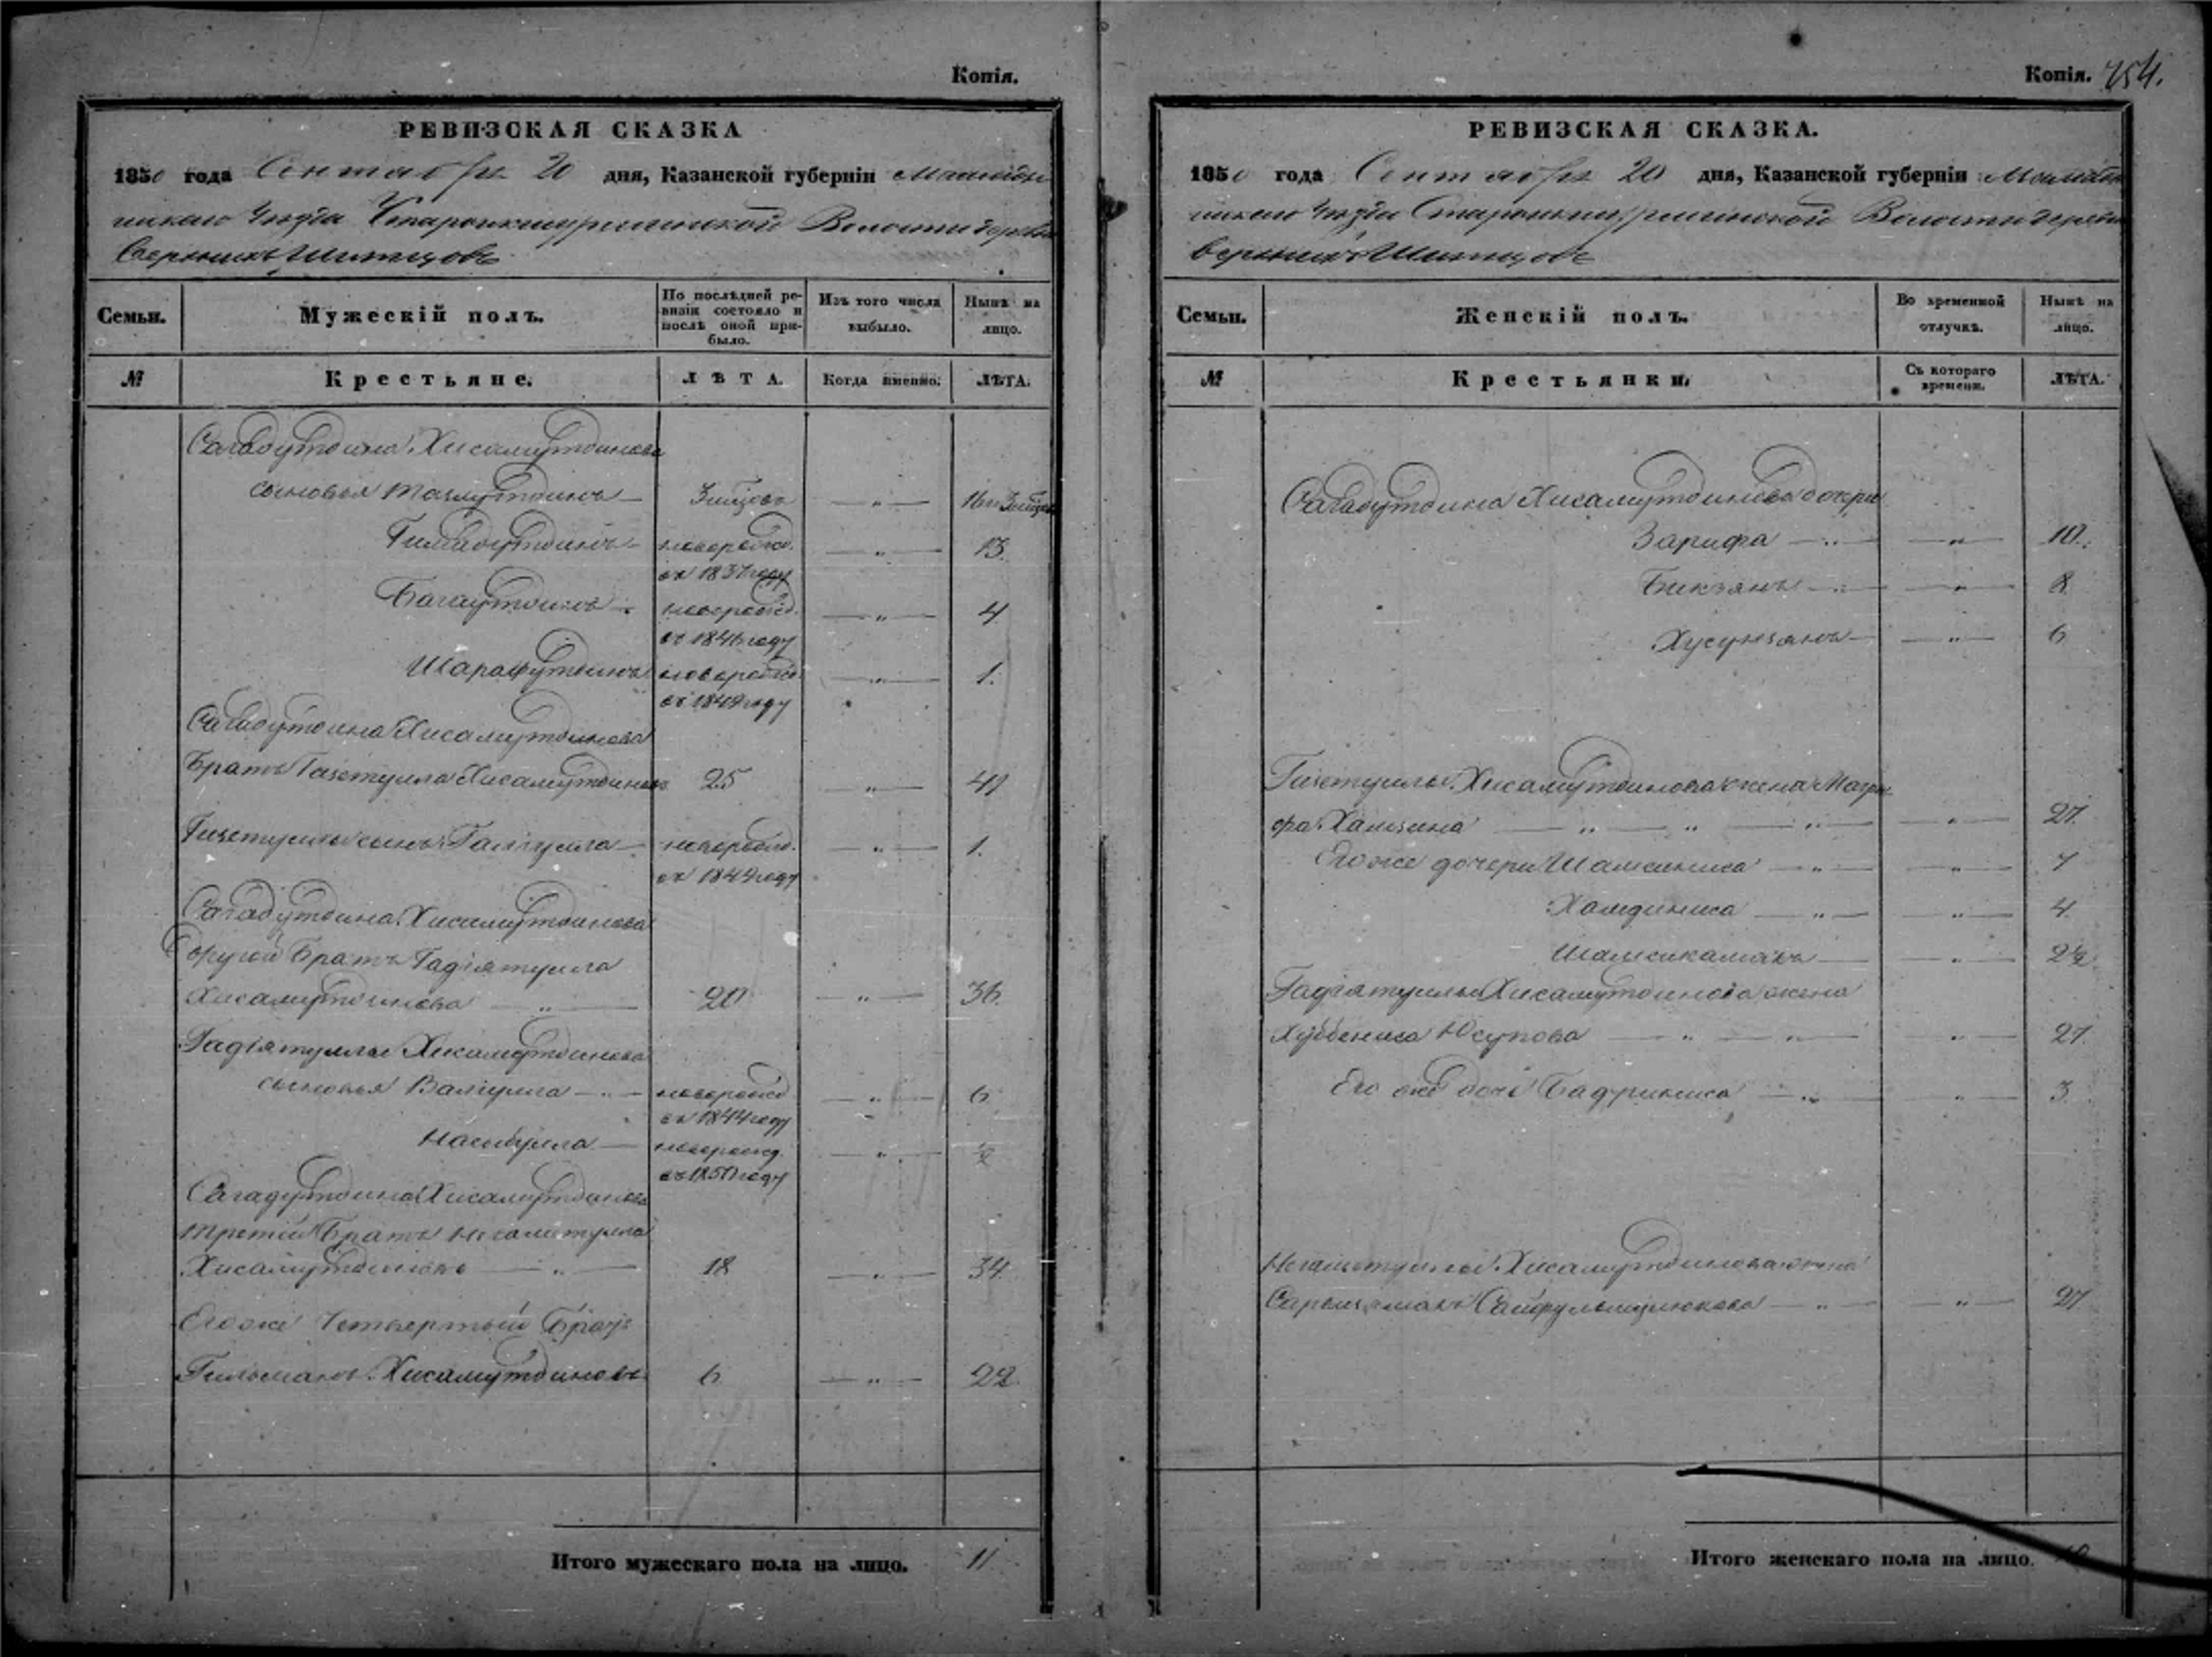 Копія.
РЕВИЗСКАЯ СКАЗКА
1850 года Сентября 20 дня, Казанской губерніи Мамадыш
скаго Уѣзда Старокишурминской Волости деревни
Верхнихъ Шитцовъ
Семьи.
Мужескій полъ.
По послѣдней ре-
визіи состояло и
послѣ оной при-
было.
Изъ того числа
выбыло.
Нынѣ на
лицо.
№
Крестьяне.
ЛѢТА.
Когда именно.
ЛѢТА.
Сагадутдина Хисамутдинова
сыновья 3 мѣсяцовъ — " — 16
Гимадутдинъ — новорожд. — " — 13.
въ 1837 году
Багаутдинъ — новорожд. — " — 4
въ 1846 году
Шарафутдинъ новорожд. — " — 1.
въ 1849 году
Сагадутдина Хисамутдинова
Братъ Гизетулла Хисамутдиновъ 25 — " — 41
Гизетуллы сынъ Галиулла — новорожд. — " — 1.
въ 1849 году
Сагадутдина Хисамутдинова
другой Братъ Гадіятулла
Хисамутдинова — " — 20 — " — 36.
Гадіятуллы Хисамутдинова
сыновья Валіулла — " — новорожд — " — 6
въ 1844 году
Насибулла — новорожд. — " — ½
въ 1850 году
Сагадутдина Хисамутдинова
третій Братъ Нигаметулла
Хисамутдиновъ — " — 18 — " — 34.
Его же Четвертый Братъ
Гильманъ Хисамутдиновъ 6 — " — 22.
Итого мужескаго пола на лицо. 11
Копія. 754.
РЕВИЗСКАЯ СКАЗКА.
1850 года Сентября 20 дня, Казанской губерніи Мамадыш
скаго Уѣзда Старокишурминской Волости деревни
Верхнихъ Шитцовъ
Семьи.
Женскій полъ.
Во временной
отлучкѣ.
Нынѣ на
лицо.
№
Крестьянки.
Съ котораго
времени.
ЛѢТА.
Сагадутдина Хисамутдинова дочери
Зарифа — " — " — 10.
Бикзянъ — " — " — 8
Хусунзянъ — " — 6
Гизетуллы Хисамутдинова жена Магру
фа Хамзина — " — " — " — " — 27.
Его же дочери Шамсиниса — " — " — 7
Халидиниса — " — " — 4.
Шамсикамалъ — " — 2½.
Гадіятуллы Хисамутдинова жена
Хуббениса Юсупова — " — " — " — 27.
Его же дочь Бадриниса — " — " — 3.
Нигаметуллы Хисамутдинова жена
— " — " — 27
Итого женскаго пола на лицо. 10